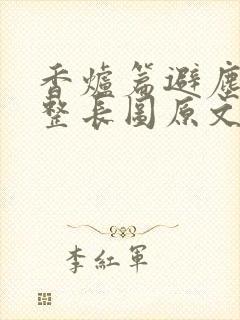 香爐篇避塵
整長圖原文
李紅軍